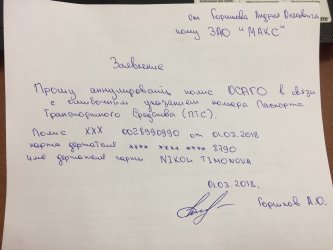 от Горшкова Андрея Олеговича
кому ЗАО "МАКС"
Заявление
Прошу аннулировать полис ОСАГО в связи
с ошибочным указанием номера Паспорта
Транспортного Средства (ПТС).
Полис XXX 0028990990 от 01.03.2018
карта держателя **** **** **** 8790
имя держателя карты NIKOL TIMONOVA
01.03.2018.
Горшков А.О.